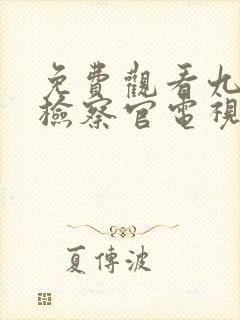 免費觀看九
檢察官電視
夏傳波